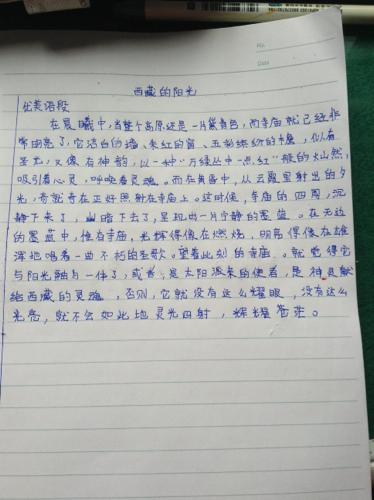 No.
Date
西藏的阳光
优美语段
在晨曦中,当整个高原还是一片紫青色,而寺庙就已经非
常明亮了,它洁白的墙、朱红的窗、五彩缤纷的布幔,似有
圣光,又像有神韵,以一种"万绿丛中一点红"般的灿然,
吸引着心灵,呼唤着灵魂。而在黄昏中,从云霞里射出的夕
光,旁就旁在正好照射在寺庙上。这时候,寺庙的四周,沉
静下来了,幽暗下去了,呈现出一片宁静的墨蓝。在无边
的墨蓝中,惟有寺庙,光辉得像在燃烧,明亮得像在雄
浑地唱着一曲不朽的圣歌。望着此刻的寺庙。就觉得它
与阳光融为一体了,或者,是太阳派来的使者,是神贡献
给西藏的灵魂,否则,它就没有这么耀眼,没有这么
光亮,就不会如此地灵光四射,辉耀苍茫。